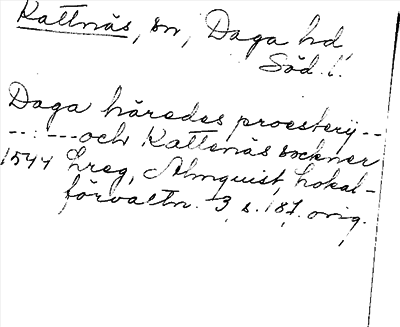 Kattnäs, sn, Daga hd,
Söd. l.
Daga härades proestery--
--:---och Kattenäs sockner
1544 Lreg, Almquist, Lokal-
förvaltn. 3, s. 187. orig.